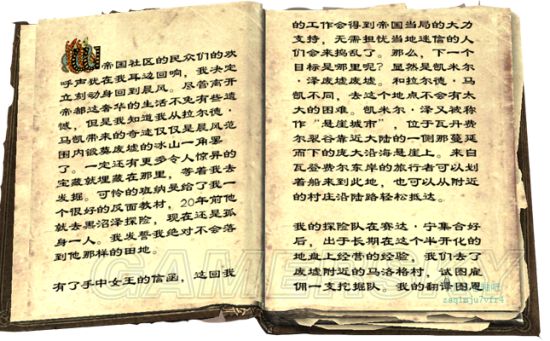 帝国社区的民众们的欢
呼声犹在我耳边回响，我决定
立刻动身回到晨风。尽管离开
帝都这奢华的生活不免有些遗
憾，但是我知道我从拉尔德·
马凯带来的奇迹仅仅是晨风范
围内锻莫废墟的冰山一角罢
了。一定还有更多令人惊异的
宝藏就埋藏在那里，等着我去
发掘。可怜的班纳曼给了我一
个很好的反面教材，20年前他
就去黑沼泽探险，现在还是孤
身一人。我发誓我绝对不会落
到他那样的田地。
有了手中女王的信函，这回我
的工作会得到帝国当局的大力
支持，无需担忧当地迷信的人
们会来捣乱了。那么，下一个
目标是哪里呢？显然是凯米尔
·泽废废墟。和拉尔德·马
凯不同，去这个地点不会有太
大的困难。凯米尔·泽又被称
作“悬崖城市”，位于瓦丹费
尔裂谷靠近大陆的一侧那蔓延
而下的庞大沿海悬崖上。来自
瓦登费尔东岸的旅行者可以划
着船来到此地，也可以从附近
的村庄沿陆路轻松抵达。
我的探险队在赛达·宁集合好
后，出于长期在这个半开化的
地盘上经营的经验，我们去了
废墟附近的马洛格村，试图雇
佣一支挖掘队。我的翻译图恩
GAMERSKY
zaqimju7vfr4